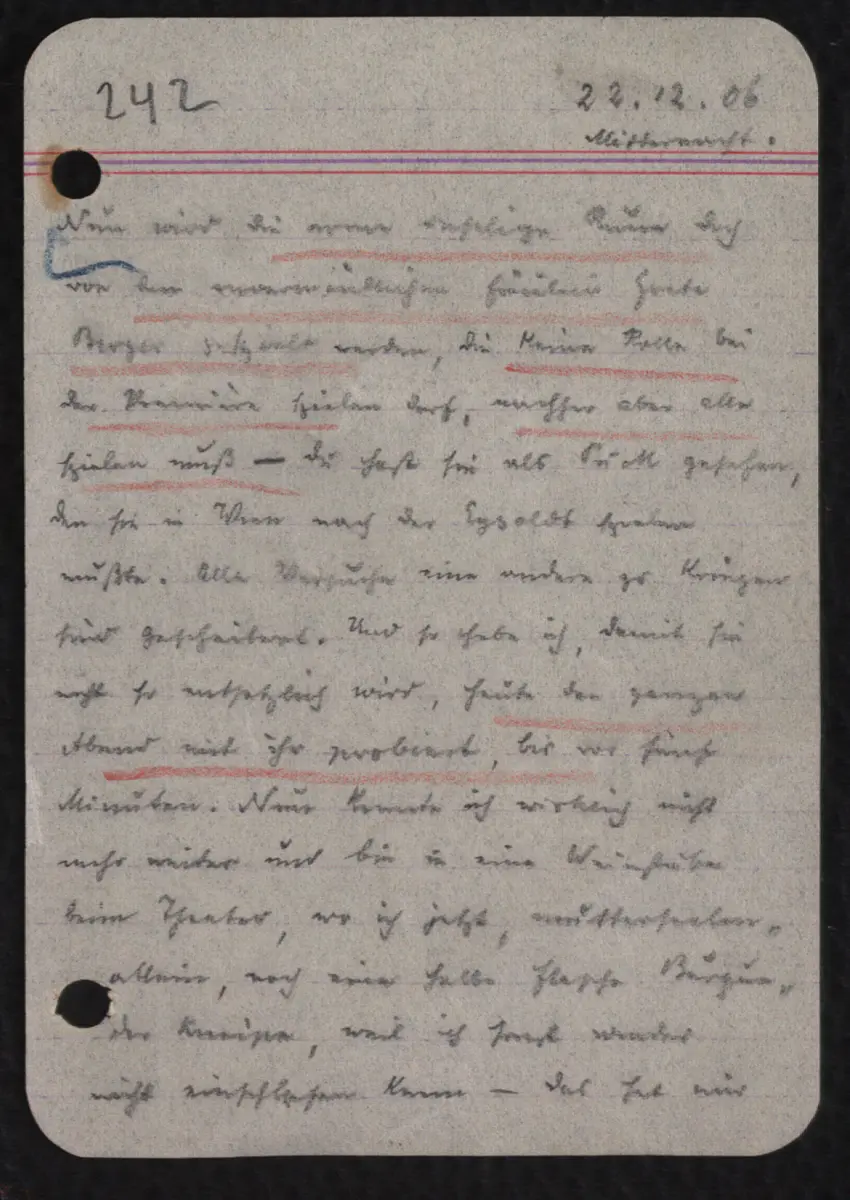 242
22.12.06
Mitternacht.
Nun wird die arme unselige Ruhm doch
von dem unvermeidlichen Fräulein Grete
Berger gespielt werden, die keine Rolle bei
der Première spielen darf, nachher aber alle
spielen muß — Du hast sie als Puck gesehen,
den sie in Wien nach der Eysoldt spielen
mußte. Alle Versuche eine andere zu kriegen
sind gescheitert. Und so habe ich, damit sie
nicht so entsetzlich wird, heute den ganzen
Abend mit ihr probiert, bis vor fünf
Minuten. Nun konnte ich wirklich nicht
mehr weiter und bin in eine Weinstube
beim Theater, wo ich jetzt, mutterseelen„
allein, noch eine halbe Flasche Burgun„
der kneipe, weil ich sonst wieder
nicht einschlafen kann — das hat mir